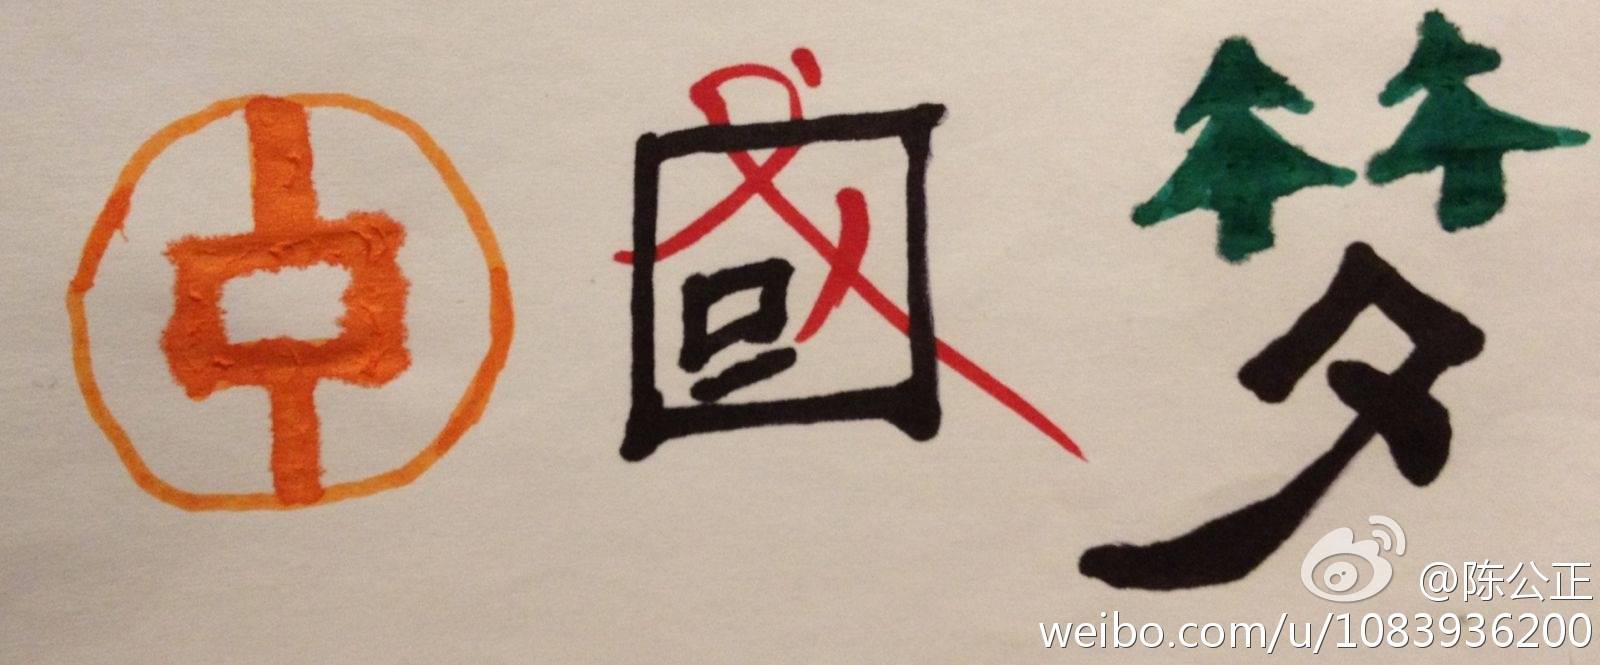 中國梦
@陈公正
weibo.com/u/1083936200